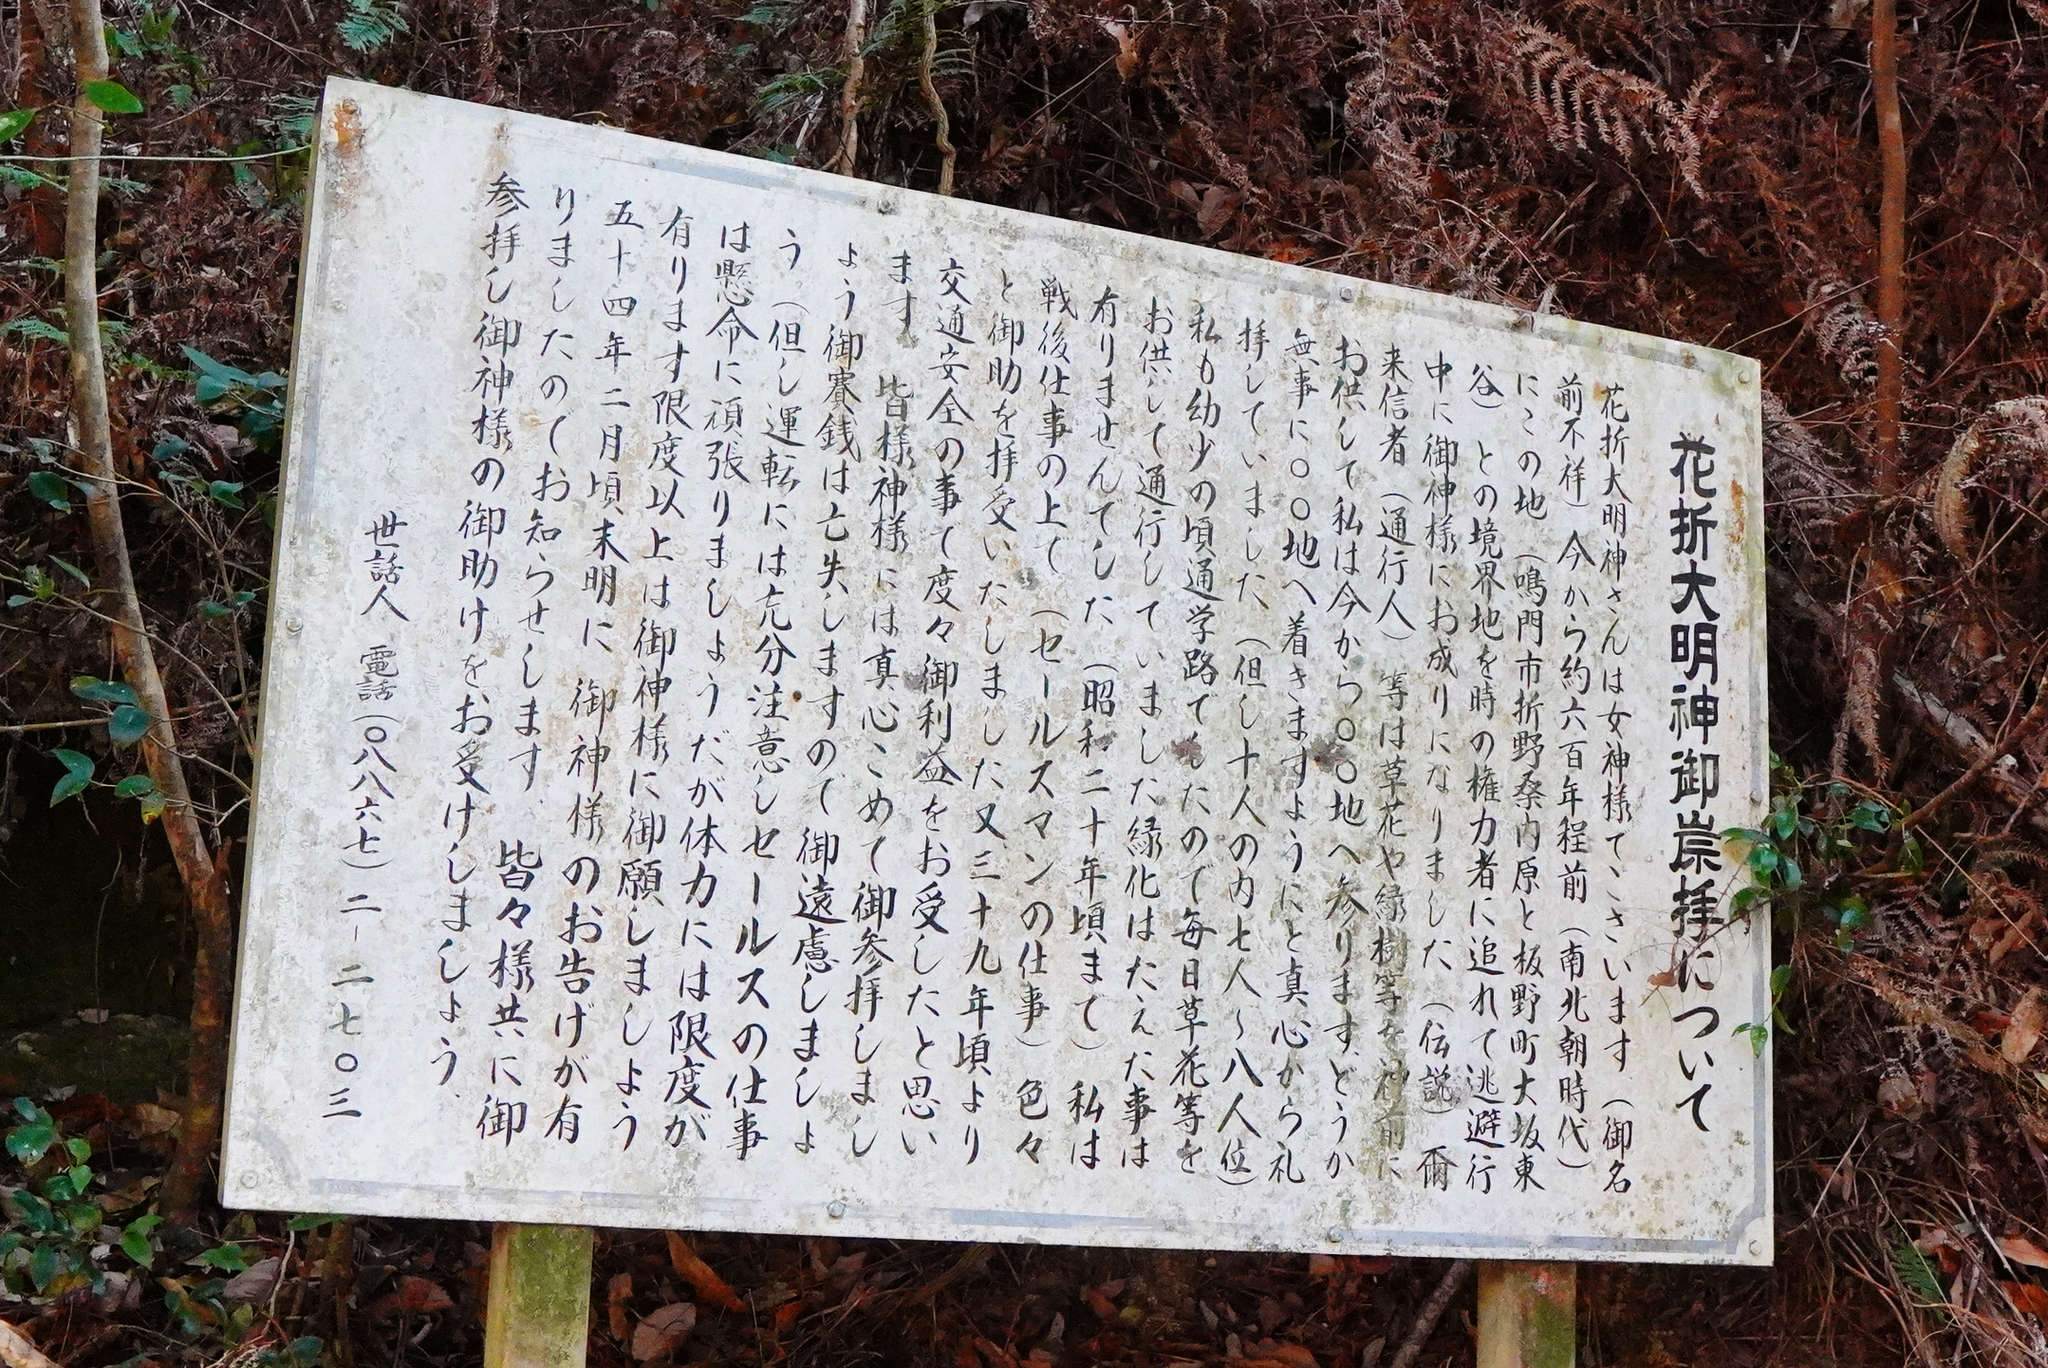 花折大明神御崇拝について
花折大明神さんは女神様でございます、（御名
前不祥）今から約六百年程前（南北朝時代）
にこの地（鳴門市折野桑内原と板野町大坂東
谷）との境界地を時の権力者に追れて逃避行
中に御神様にお成りになりました、（伝説）爾
来信者（通行人）等は草花や緑樹等を神前に
お供して私は今から〇〇地へ参ります、どうか
無事に〇〇地へ着きますようにと真心から礼
拝していました、（但し十人の内七人〜八人位）
私も幼少の頃通学路でしたので毎日草花等を
お供して通行していました縁化はたえた事は
有りませんでした、（昭和二十年頃まで）私は
戦後仕事の上で（セールスマンの仕事）色々
と御助を拝受いたしました又三十九年頃より
交通安全の事で度々御利益をお受したと思い
ます、皆様神様には真心こめて御参拝しまし
ょう御賽銭は亡失しますので御遠慮しましょ
う。（但し運転には充分注意しセールスの仕事
は懸命に頑張りましょうだが体力には限度が
有ります限度以上は御神様に御願しましよう
五十四年二月頃末明に御神様のお告げが有
りましたのでお知らせします、皆々様共に御
参拝し御神様の御助けをお受けしましょう、
世話人 電話（〇八八六七）二-二七〇三